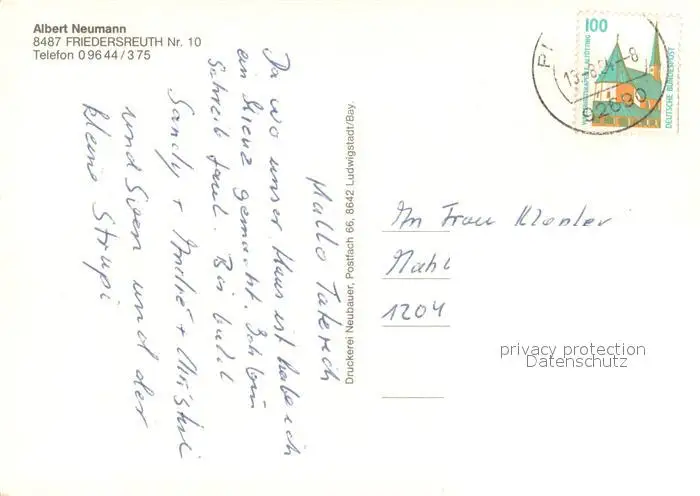 Albert Neumann
8487 FRIEDERSREUTH Nr. 10
Telefon 0 96 44 / 3 75
Hallo
Da wo unser Haus ist habe ich
ein gemacht. Ich bin
Schreib faul. Bis bald
Sandy + André + Christel
und Sven und der
kleine Strupi
Druckerei Neubauer, Postfach 66, 8642 Ludwigstadt/Bay.
100
DEUTSCHE BUNDESPOST
92690
An Frau
1204
privacy protection
Datenschutz